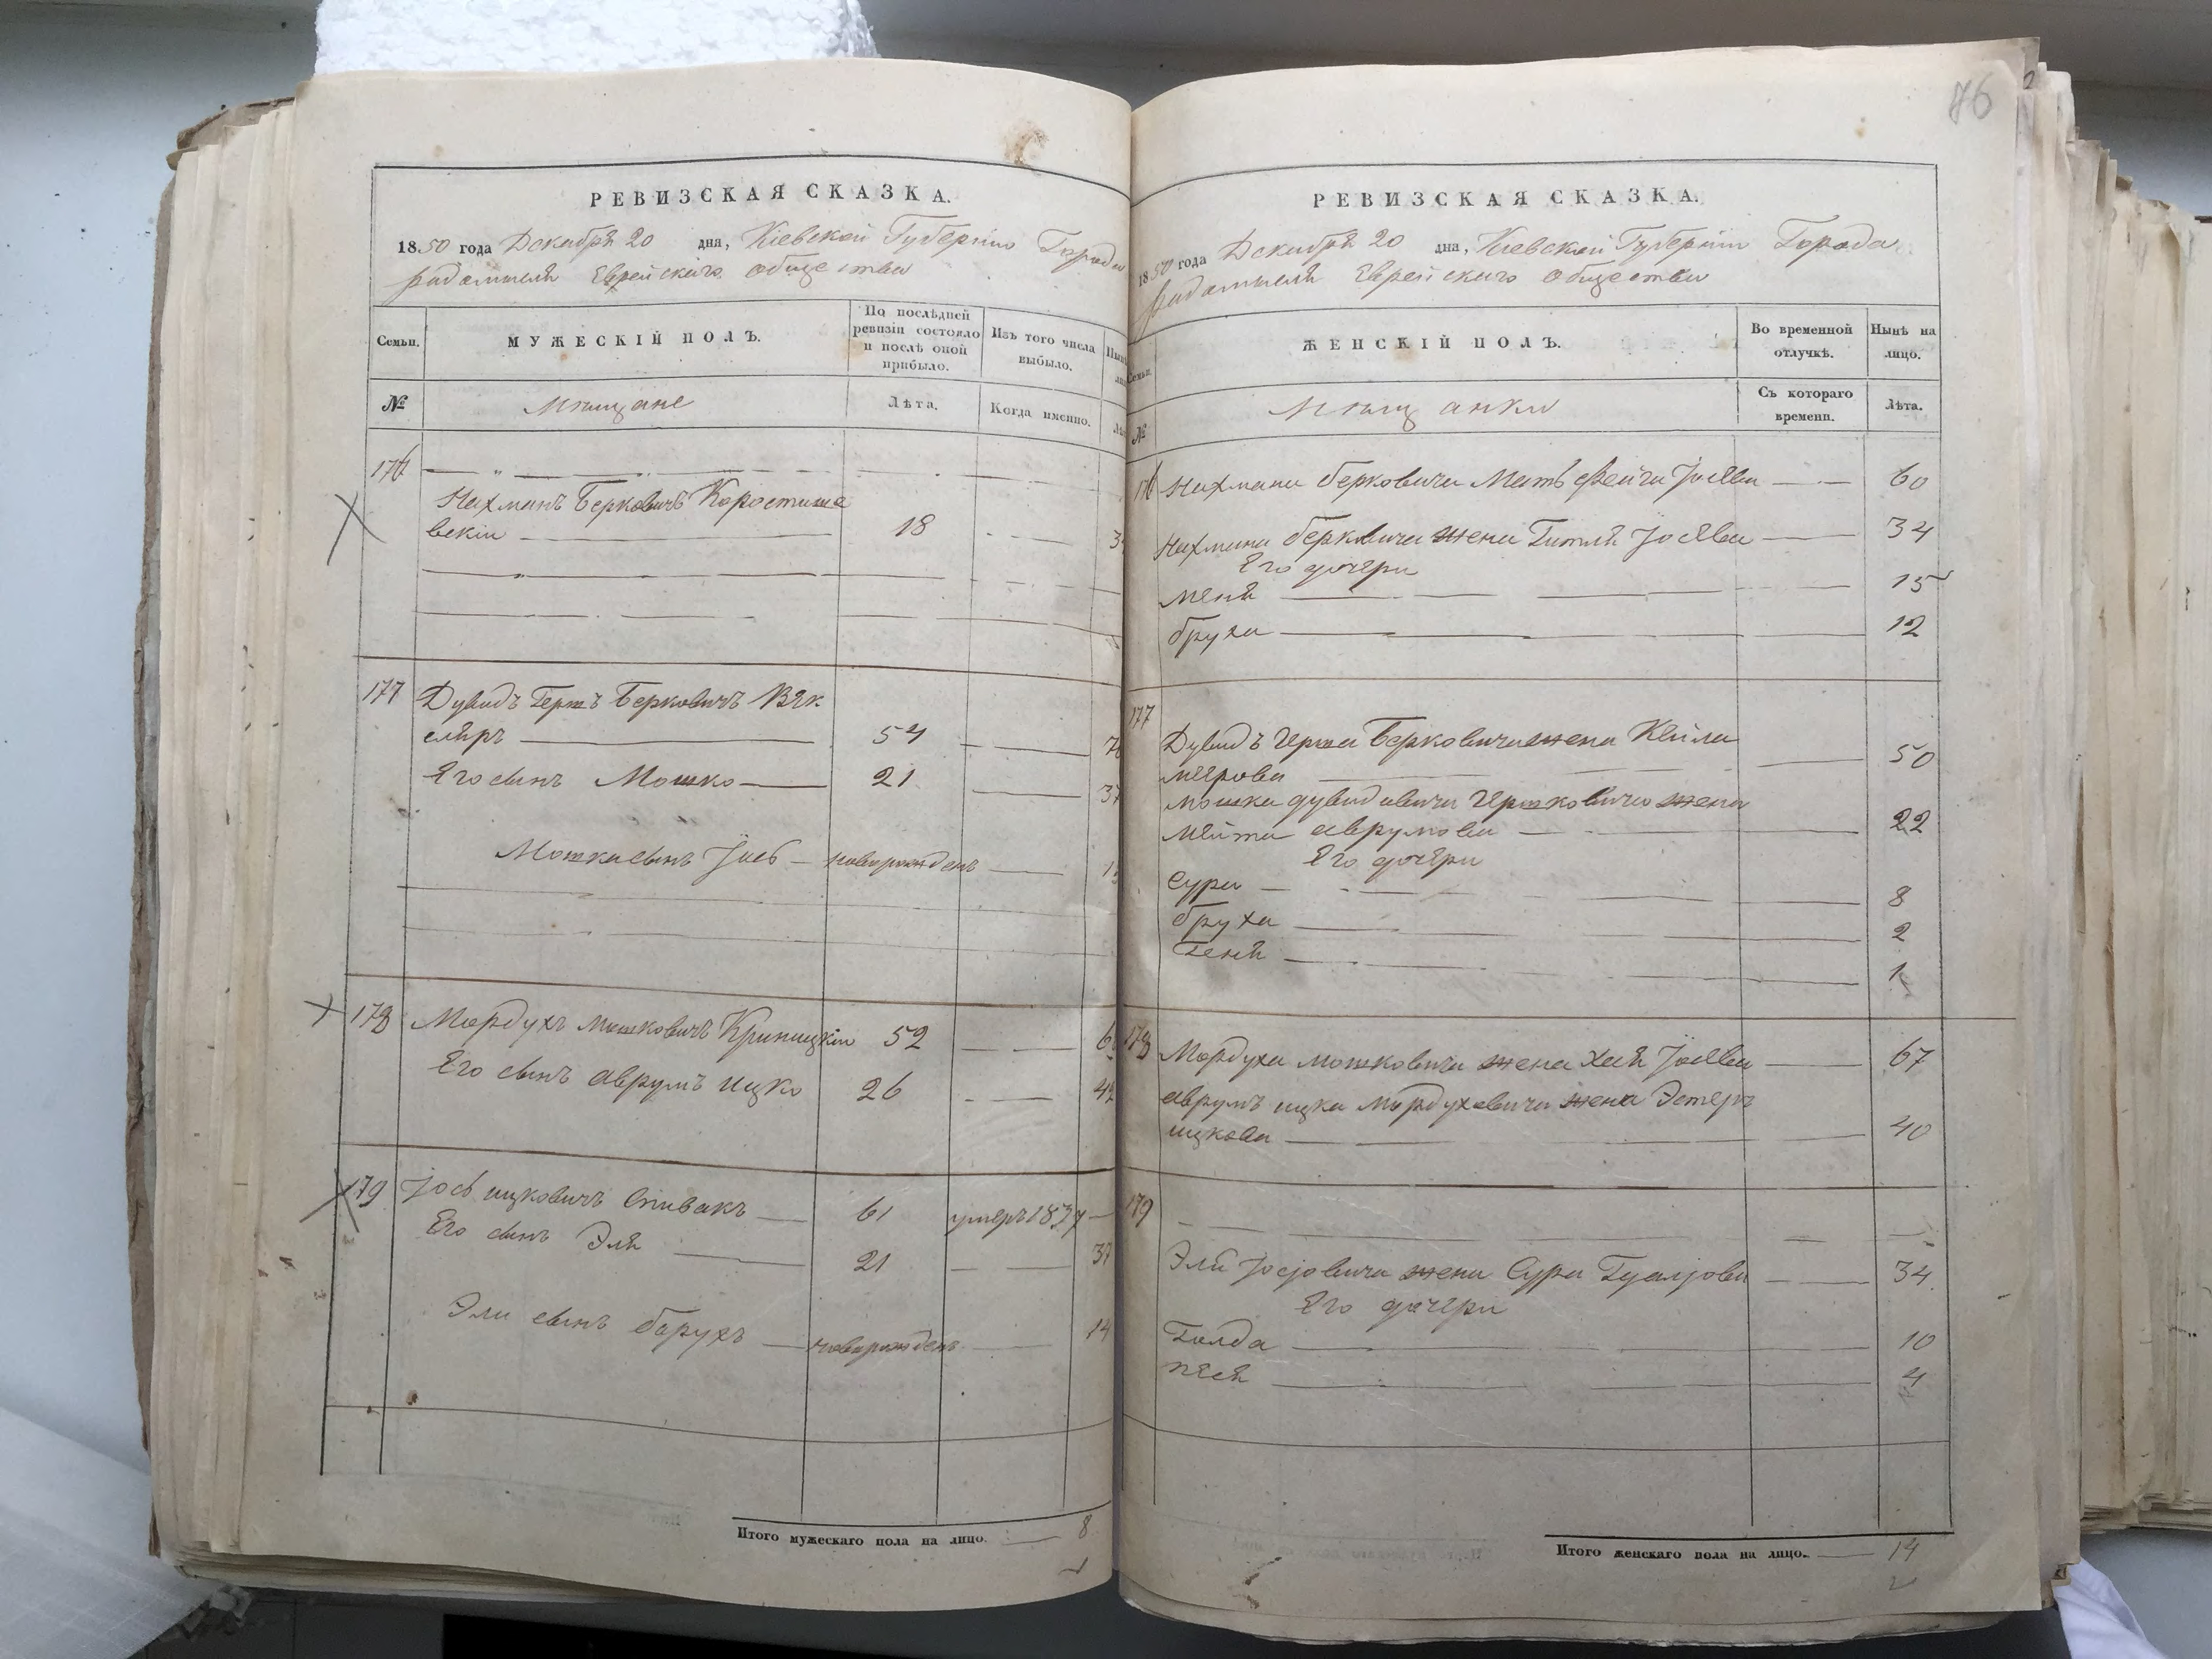 76
РЕВИЗСКАЯ СКАЗКА.
1850 года Декабря 20 дня, Кіевской Губерніи Города
Радомысля Еврейскаго общества
Семьи.
МУЖЕСКІЙ ПОЛЪ.
По послѣдней ревизіи состояло и послѣ оной прибыло.
Изъ того числа выбыло.
№
Мѣщане
Лѣта.
Когда именно.
176
Нахманъ Берковичъ Коростише
вскій 18
177 Дувидъ Гершъ Берковичъ Век
слеръ 54
Его сынъ Мошко 21
Мошки сынъ Іось новорожденъ
178 Мордухъ Мошковичъ Криницкій 52
Его сынъ Аврумъ Ицко 26
179 Іось Ицковичъ Спивакъ 61 умеръ
Его сынъ Эля 21 37
Эли сынъ Борухъ новорожденъ 14
Итого мужескаго пола на лицо. 8
РЕВИЗСКАЯ СКАЗКА.
1850 года Декабря 20 дня, Кіевской Губерніи Города
Радомысля Еврейскаго общества
Семьи.
ЖЕНСКІЙ ПОЛЪ.
Во временной отлучкѣ.
Нынѣ на лицо.
№
Мѣщанки
Съ котораго времени.
Лѣта.
Нахмана Берковича Мать Фейга Іосева 60
Нахмана Берковича жена Гитля Іосева 34
Его дочери
Меня 15
Бруха 12
177
Дувидъ Герша Берковича жена Кейла 50
Меерова
Мошка Дувидовича Гершковича жена
Мейта Аврумова 22
Его дочери
Сура 8
Бруха 2
Геня 1
178 Мордуха Мошковича жена Хая Іосева 67
Аврумъ Ицка Мордуховича жена Эстеръ
Ицкова 40
179
Эли Іосіовича жена Сура 34
Его дочери
Голда 10
Песя 4
Итого женскаго пола на лицо. 14